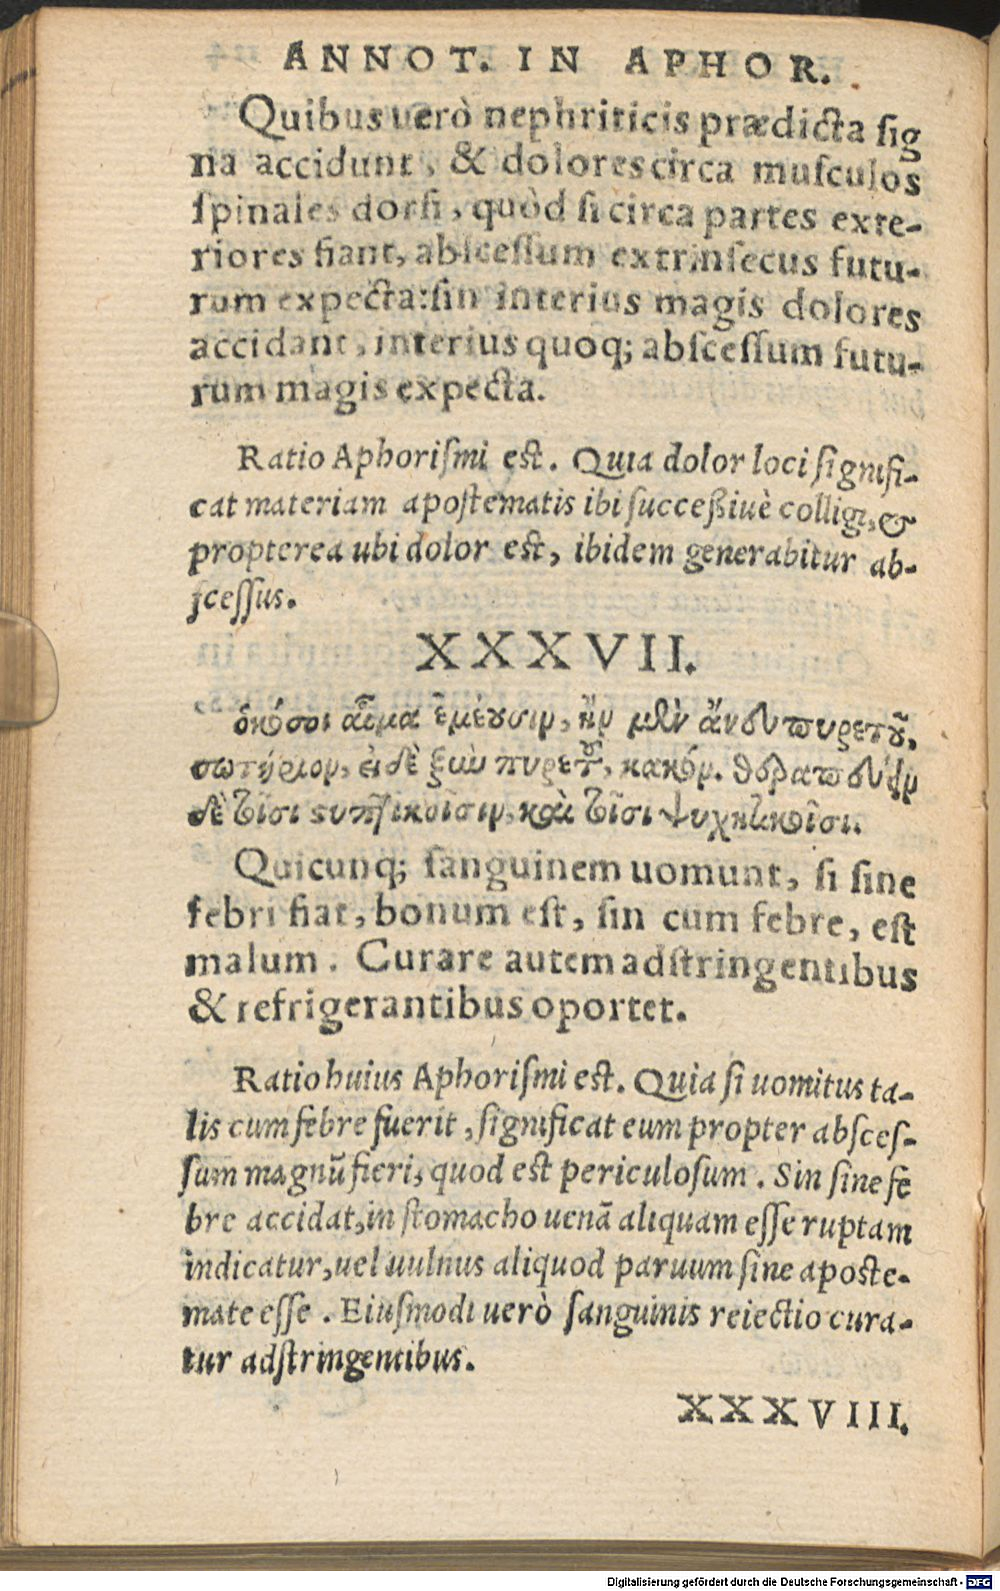 ANNOT. IN APHOR.
Quibus uerò nephriticis prædicta sig
na accidunt, & dolores circa musculos
spinales dorsi, quòd si circa partes exte-
riores fiant, abscessum extrinsecus futu-
rum expecta: sin interius magis dolores
accidant, interius quoq; abscessum futu-
rum magis expecta.
Ratio Aphorismi est. Quia dolor loci signifi-
cat materiam apostematis ibi successiuè colligi, &
propterea ubi dolor est, ibidem generabitur ab-
scessus.
XXXVII.
ὁκόσοι αἷμα ἐμέουσιν, ἢν μὲν ἄνευ πυρετοῦ,
σωτήριον, εἰ δὲ ξὺν πυρετῷ, κακόν. θεραπεύειν
δὲ τοῖσι στυπτικοῖσιν, καὶ τοῖσι ψυχτικοῖσι.
Quicunq; sanguinem uomunt, si sine
febri fiat, bonum est, sin cum febre, est
malum. Curare autem adstringentibus
& refrigerantibus oportet.
Ratio huius Aphorismi est. Quia si uomitus ta-
lis cum febre fuerit, significat eum propter absces-
sum magnũ fieri, quod est periculosum. Sin sine fe
bre accidat, in stomacho uenã aliquam esse ruptam
indicatur, uel uulnus aliquod paruum sine aposte-
mate esse. Eiusmodi uerò sanguinis reiectio cura-
tur adstringentibus.
XXXVIII.
Digitalisierung gefördert durch die Deutsche Forschungsgemeinschaft - DFG